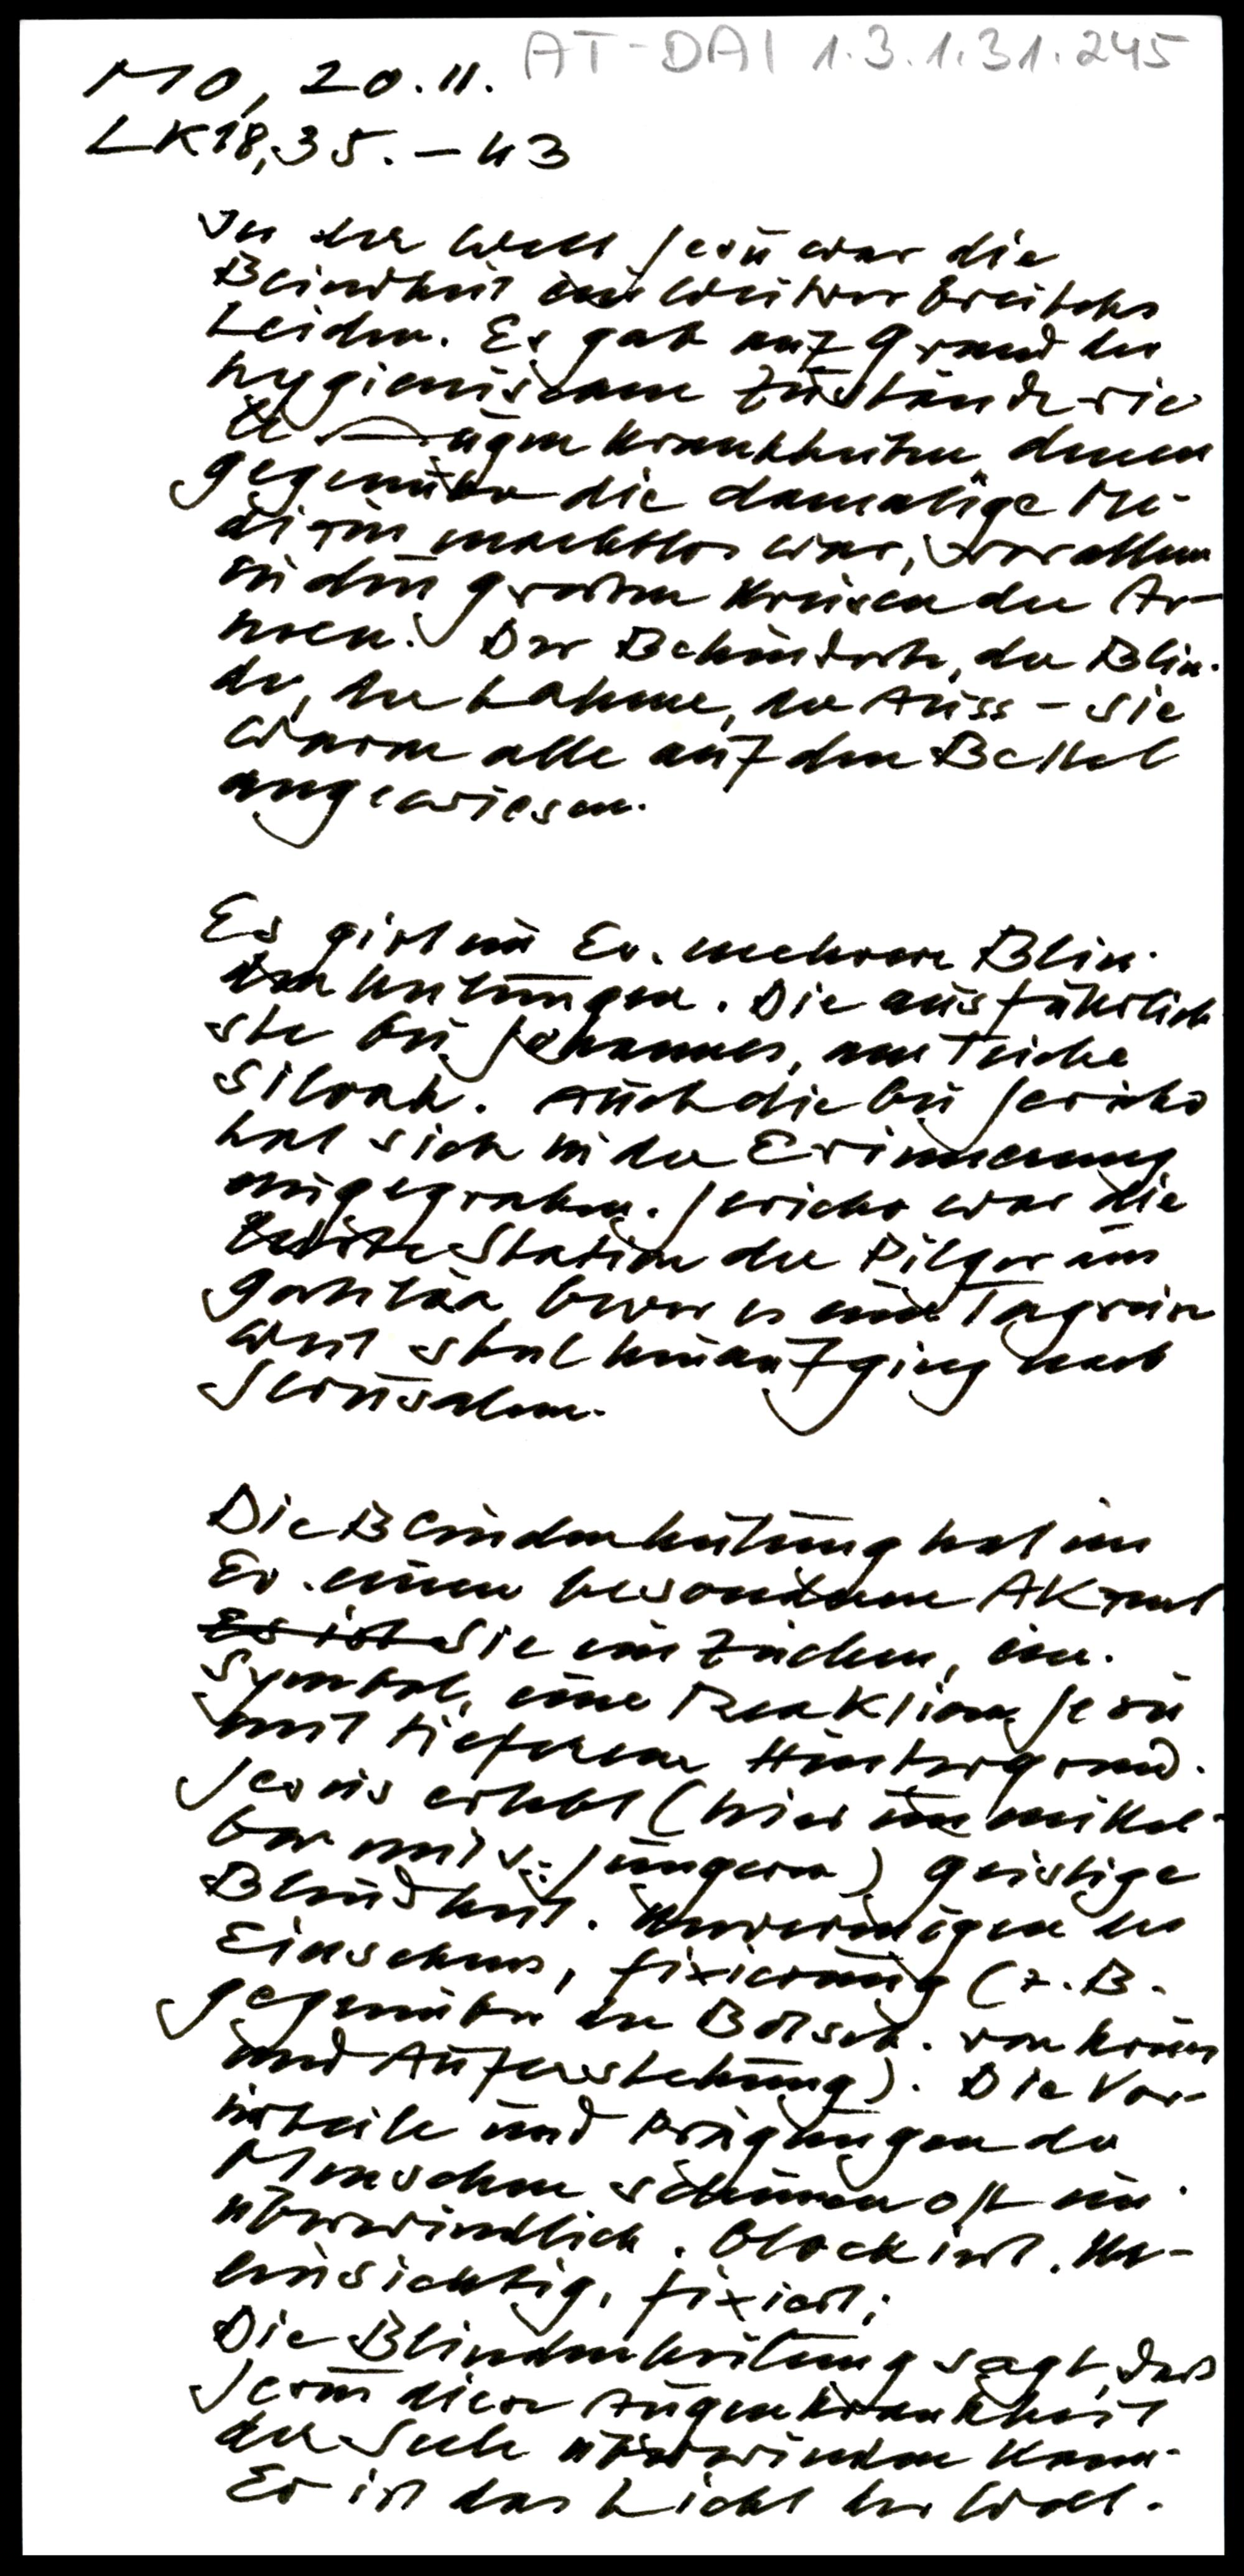 AT-DAI 1.3.1.31.245
MO, 20.11.
LK18,35.-43
In der Welt Jesu war die
Blindheit ein weitverbreitetes
Leiden. Es gab auf Grund der
hygienischen Zustände vie
le Augenkrankheiten, denen
gegenüber die damalige Me-
dizin machtlos war, vor allem
in den großen Kreisen der Ar-
men. Der Behinderte, der Blin-
de, der Lahme, der Auss - sie
waren alle auf den Bettel
angewiesen.
Es gibt im Ev. mehrere Blin-
denheilungen. Die ausführlich
ste bei Johannes, am Teiche
Siloah. Auch die bei Jericho
hat sich in der Erinnerung
eingegraben. Jericho war die
letzte Station der Pilger aus
Galiläa bevor es eine Tagreise
weit steil hinaufging nach
Jerusalem.
Die Blindenheilung hat im
Ev. einen besonderen Akzent
Es ist Sie ein Zeichen, ein
Symbol, eine Reaktion Jesu
mit tieferem Hintergrund.
Jesus erlebt (hier unmittel-
bar mit s. Jüngern) geistige
Blindheit. Unvermögen des
Einsehens, Fixierung (z.B.
gegenüber der Botsch. von Kreuz
und Auferstehung). Die Vor-
urteile und Prägungen der
Menschen scheinen oft un-
überwindlich. Blockiert. Un-
einsichtig, fixiert;
Die Blindenheilung sagt, daß
Jesus diese Augenkrankheit
der Seele überwinden kann.
Er ist das Licht der Welt.